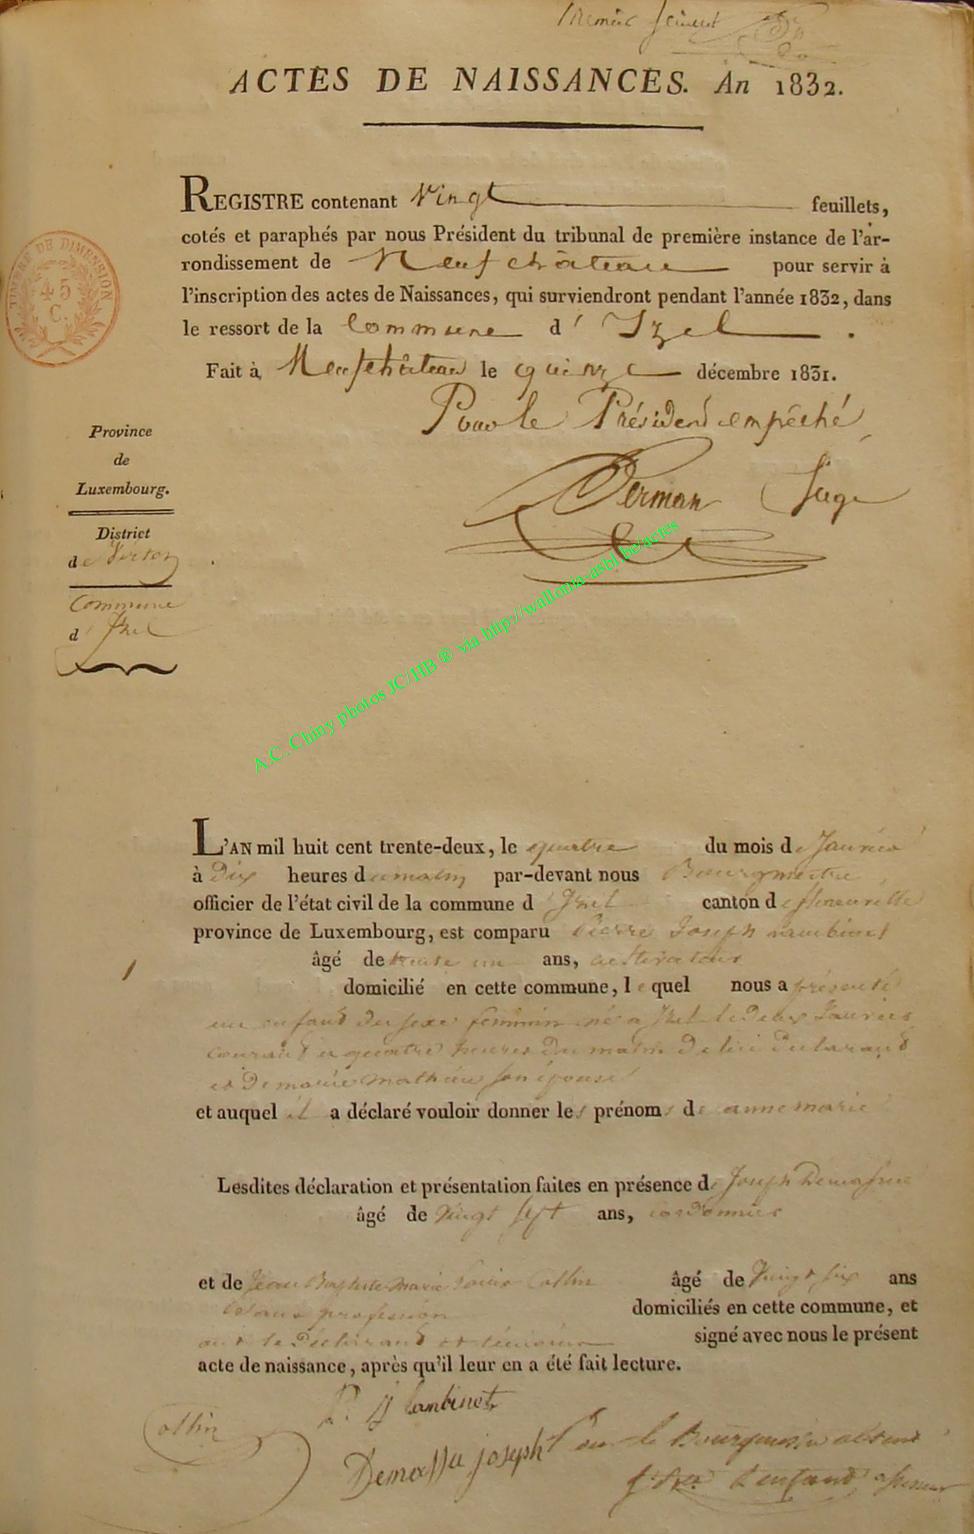 Premier feuillet
ACTES DE NAISSANCES. An 1832.
REGISTRE contenant Vingt feuillets,
cotés et paraphés par nous Président du tribunal de première instance de l'ar-
rondissement de Neufchâteau pour servir à
l'inscription des actes de Naissances, qui surviendront pendant l'année 1832, dans
le ressort de la Commune d'Izel.
Fait à Neufchâteau le quinze décembre 1831.
Pour le Président empêché
Juge
TIMBRE DE DIMENSION
45
C.
Province
de
Luxembourg.
District
de Virton
Commune
d'Izel
A.C. Chiny photos JC/HB ® via http://wallonia-asbl.be/actes
L'AN mil huit cent trente-deux, le quatre du mois de Janvier
à Dix heures du matin par-devant nous Bourgmestre
officier de l'état civil de la commune d'Izel canton de
province de Luxembourg, est comparu Pierre Joseph Lambinet
1
âgé de trente un ans, cultivateur
domicilié en cette commune, lequel nous a présenté
un enfant du sexe féminin né a Izel le Deux Janvier
courant a quatre heures du matin De lui Déclarant
et De marie mathieu son épouse
et auquel il a déclaré vouloir donner les prénoms de anne marie
Lesdites déclaration et présentation faites en présence de Joseph
âgé de vingt sept ans, cordonnier
et de Jean Baptiste marie Collin âgé de Vingt six ans
sans profession domiciliés en cette commune, et
ont le Déclarant et témoins signé avec nous le présent
acte de naissance, après qu'il leur en a été fait lecture.
P. J Lambinet
Collin
joseph
Pour le Bourgmestre absent